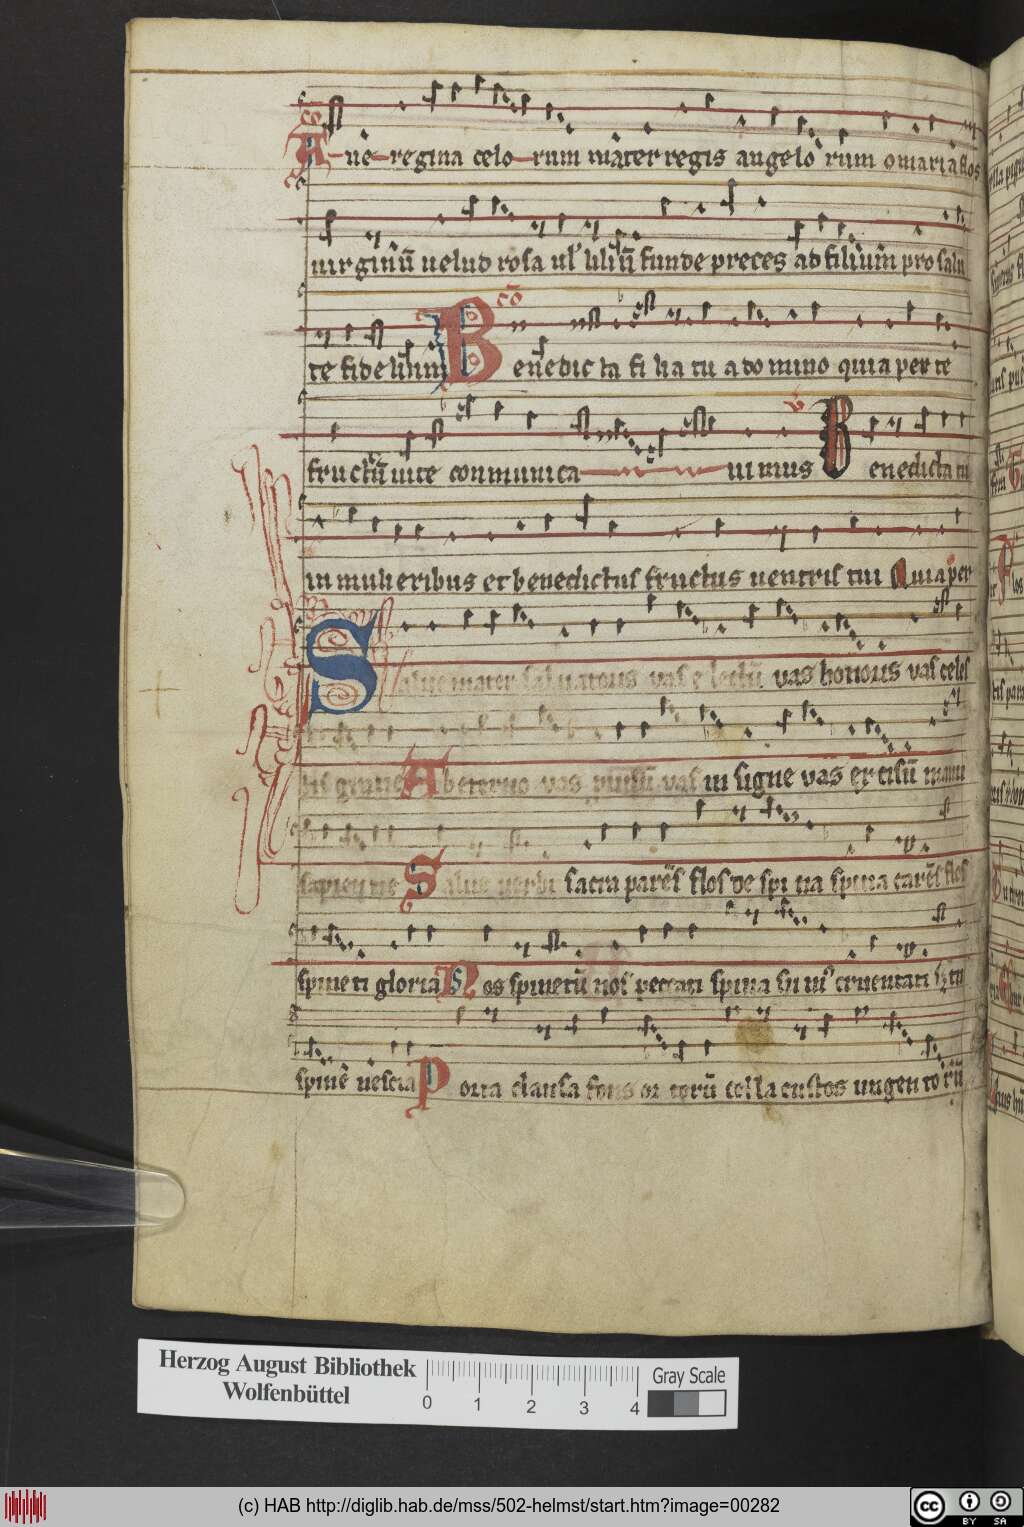 Aue regina celorum mater regis angelorum o maria flos
uirginũ uelud rosa uł liliũ funde preces ad filium pro salu
te fidelium Benedicta filia tu a domino quia per te
fructũ uite conmunicauimus Benedicta tu
in mulieribus et benedictus fructus uentris tui Quia per
Salue mater saluatoris uas electũ uas honoris uas celes
tis gratie Ab eterno uas uas in signe uas excisũ manu
sapientie Salue uerbi sacra parẽs flos de spina spina carẽs flos
spineti gloria Nos spinetũ nos peccati spina cruentati tu
spine nescia Porta clausa fons ortorũ cella custos ungentorũ
Herzog August Bibliothek
Wolfenbüttel
0 1 2 3 4
Gray Scale
(c) HAB http://diglib.hab.de/mss/502-helmst/start.htm?image=00282
cc BY SA